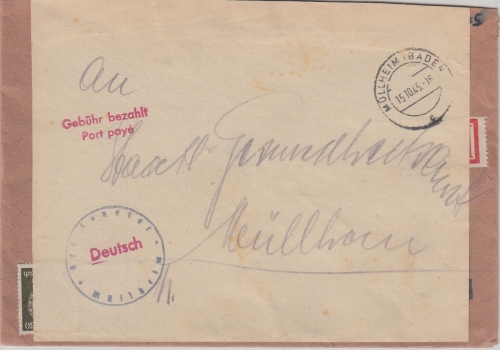 An
MÜLLHEIM (BADEN)
15.10.45.-16
c
Gebühr bezahlt
Port payé
Staatl. Gesundheitsamt
Müllheim
Deutsch